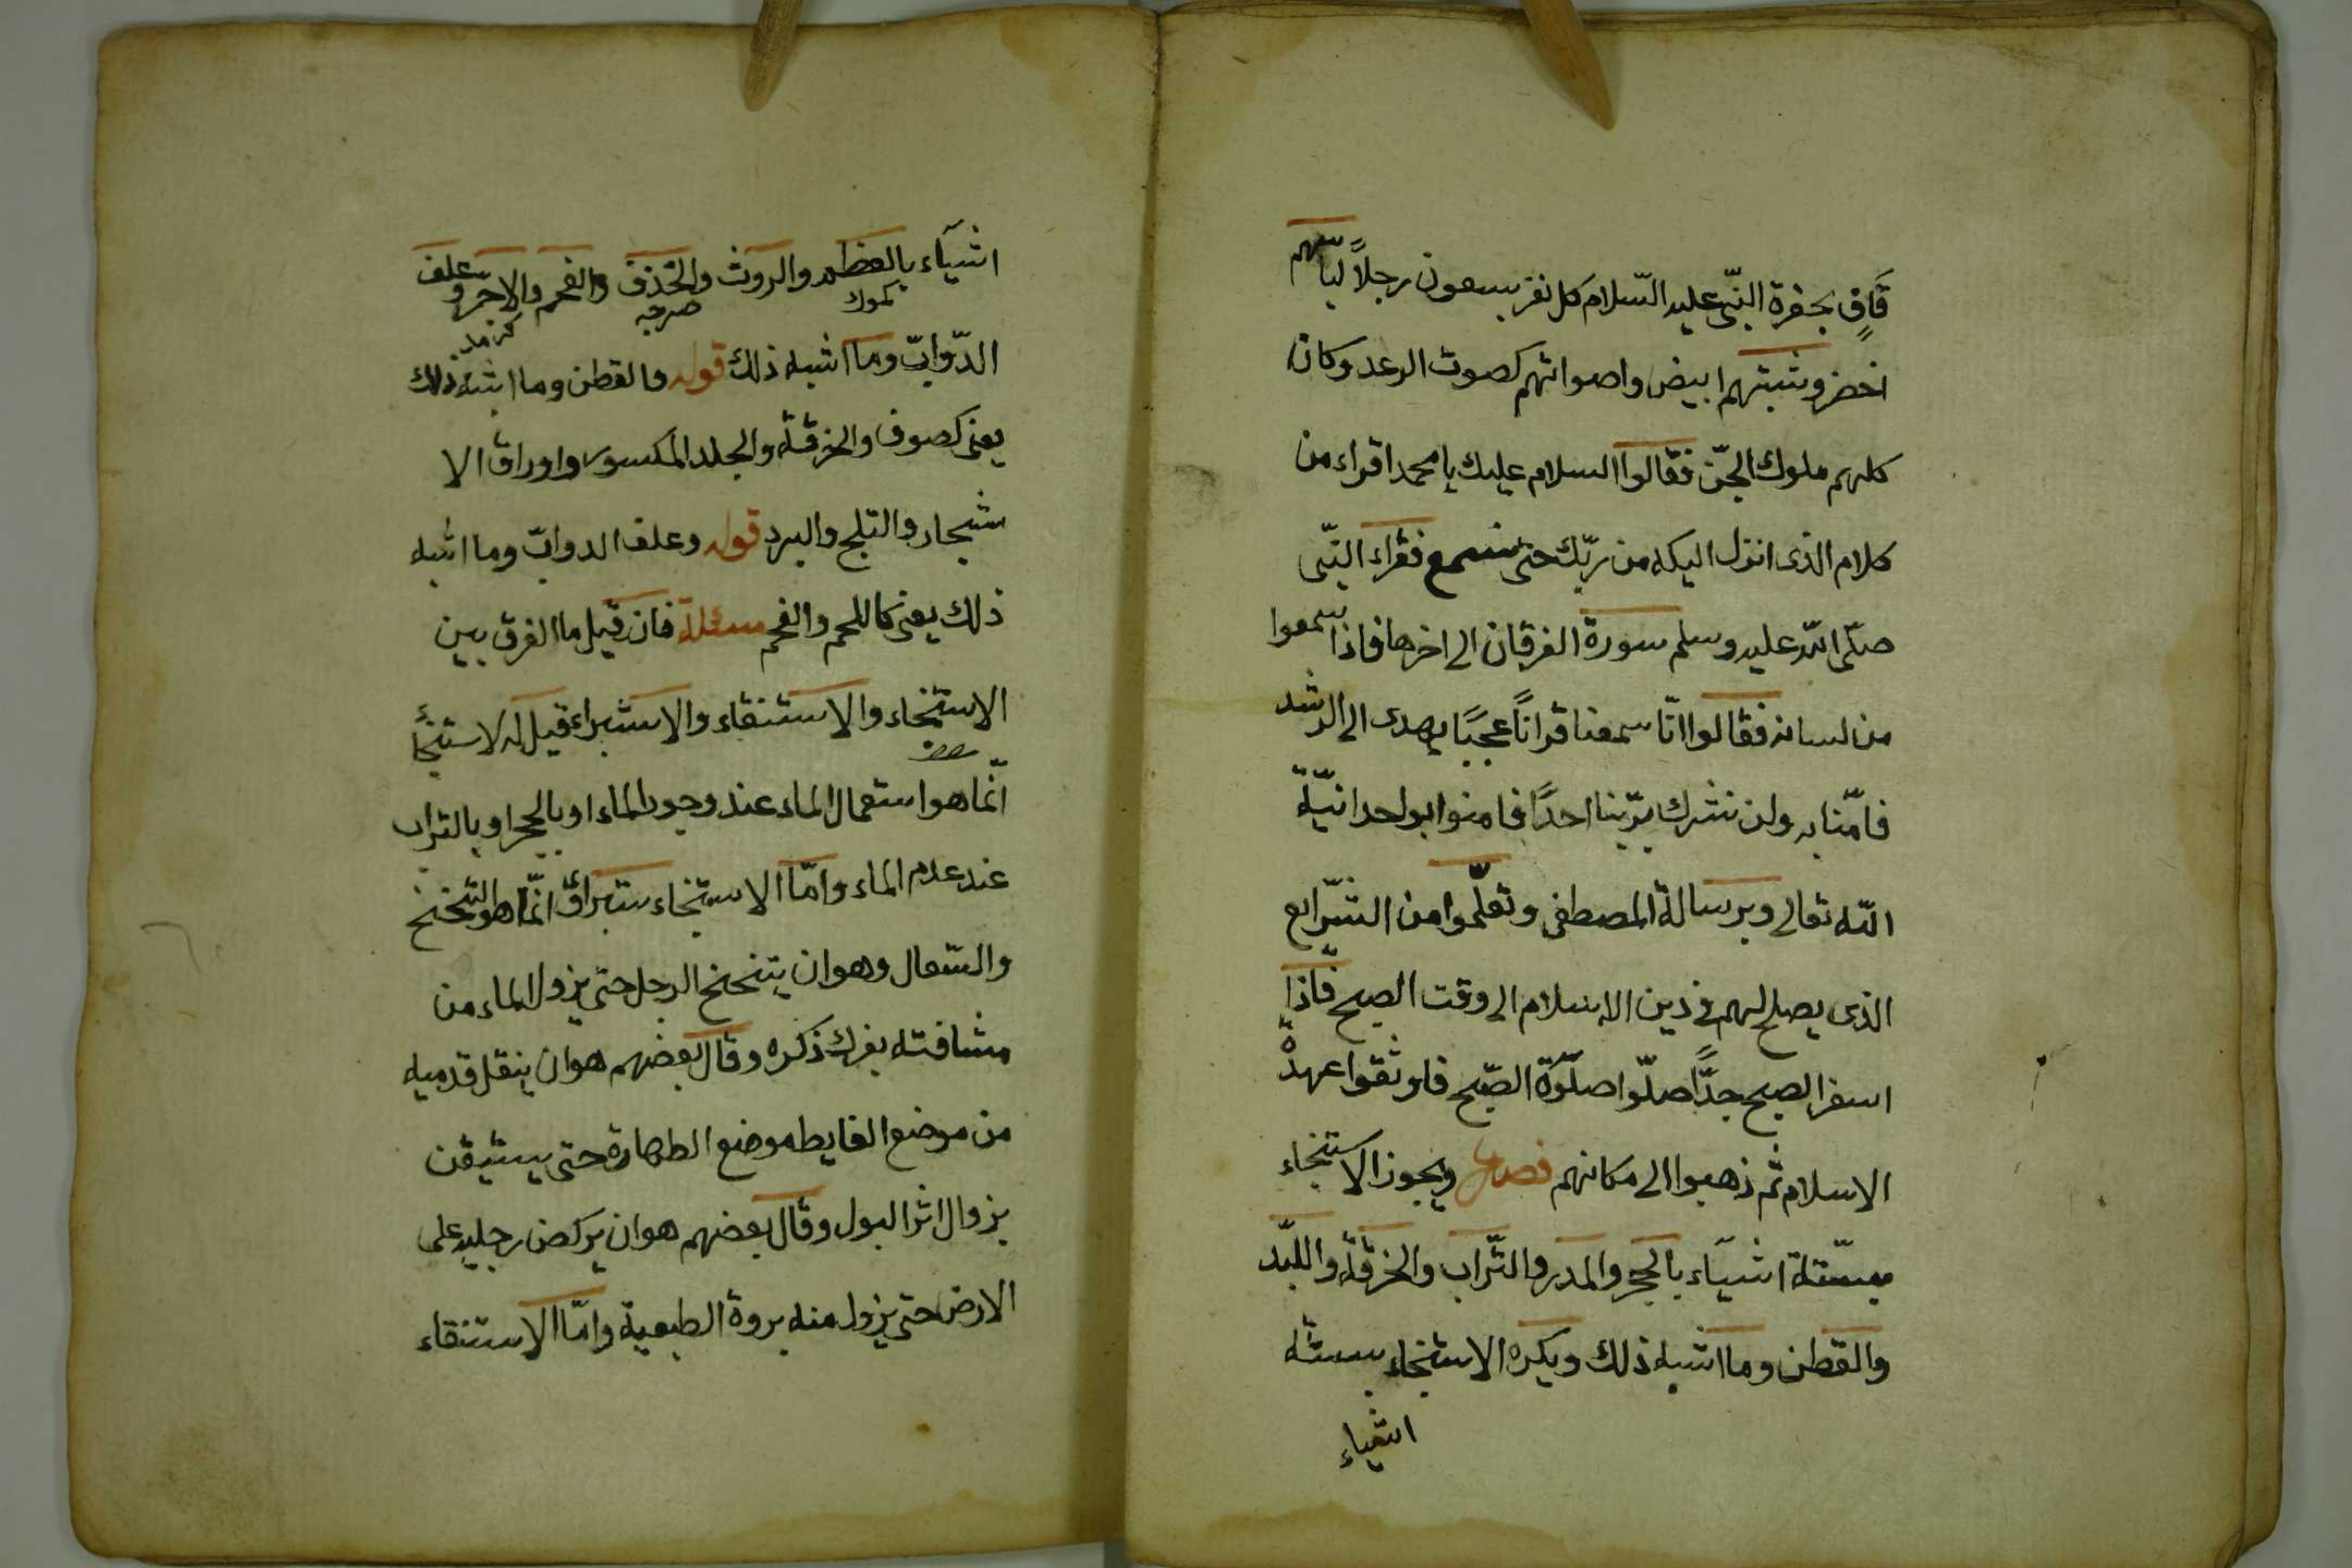 قاف بحفرة النبى عليه السلام كل نفر سبعون رجلاً لباسهم
اخضر وشيبتهم ابيض واصواتهم كصوت الرعد وكان
كلهم ملوك الجنّ فقالوا السلام عليك يا محمد اقراء من
كلام الذى انزل اليكه من ربّك حتى نسمع فقراء النبّى
صلّى الله عليه وسلم سورة الفرقان الى اخرها فاذا سمعوا
من لسانه فقالوا انّا سمعنا قراناً عجبًا يهدى الى الرشد
فامّنا به ولن نشرك بربّنا احدًا فامنوا بواحدانيّة
اللّه تعالى وبرسالة المصطفى وتعلّموا من الشرّايع
الذى يصلح لهم فى دين الاسلام الى وقت الصبح فاذا
اسفر الصبح جدًّا صلّوا صلوة الصّبح فاوثقوا عهدة
الاسلام ثم ذهبوا الى مكانهم فصل ويجوز الاستنجاء
بستّة اشيآء بالحجر والمدر والتّراب والخرقة واللّبد
والقطن وما اشبه ذلك ويكره الاستنجاء بستّة
اشياء
اشيآء بالعظم والروث والخذف والفحم والاجر وعلف
كموك صرچه كرمد
الدّوابّ وما اشبه ذلك قوله والقطن وما اشبه ذلك
يعنى كصوف والخرقة والجلد المكسور واوراق الا
شجار والثلج والبرد قوله وعلف الدوابّ وما اشبه
ذلك يعنى كاللحم والفحم مسئلة فان قيل ما الفرق بين
الاستنجاء والاستنقاء والاستبراء قيل له الاستنجأ
انّما هو استعمال الماء عند وجود الماء او بالحجر او بالتراب
عند عدم الماء وامّا الاستنجاء ستبراؤ انّما هو التنحنح
والسّعال وهو ان يتنحنح الرجل حتى يزول الماء من
مشافته بفرك ذكره وقال بعضهم هو ان ينقل قدميه
من موضع الغايط موضع الطهارة حتى يستيقن
بزوال اثر البول وقال بعضهم هو ان يركض رجليه على
الارض حتى يزول منه بروة الطبعية وامّا الاستنقاء